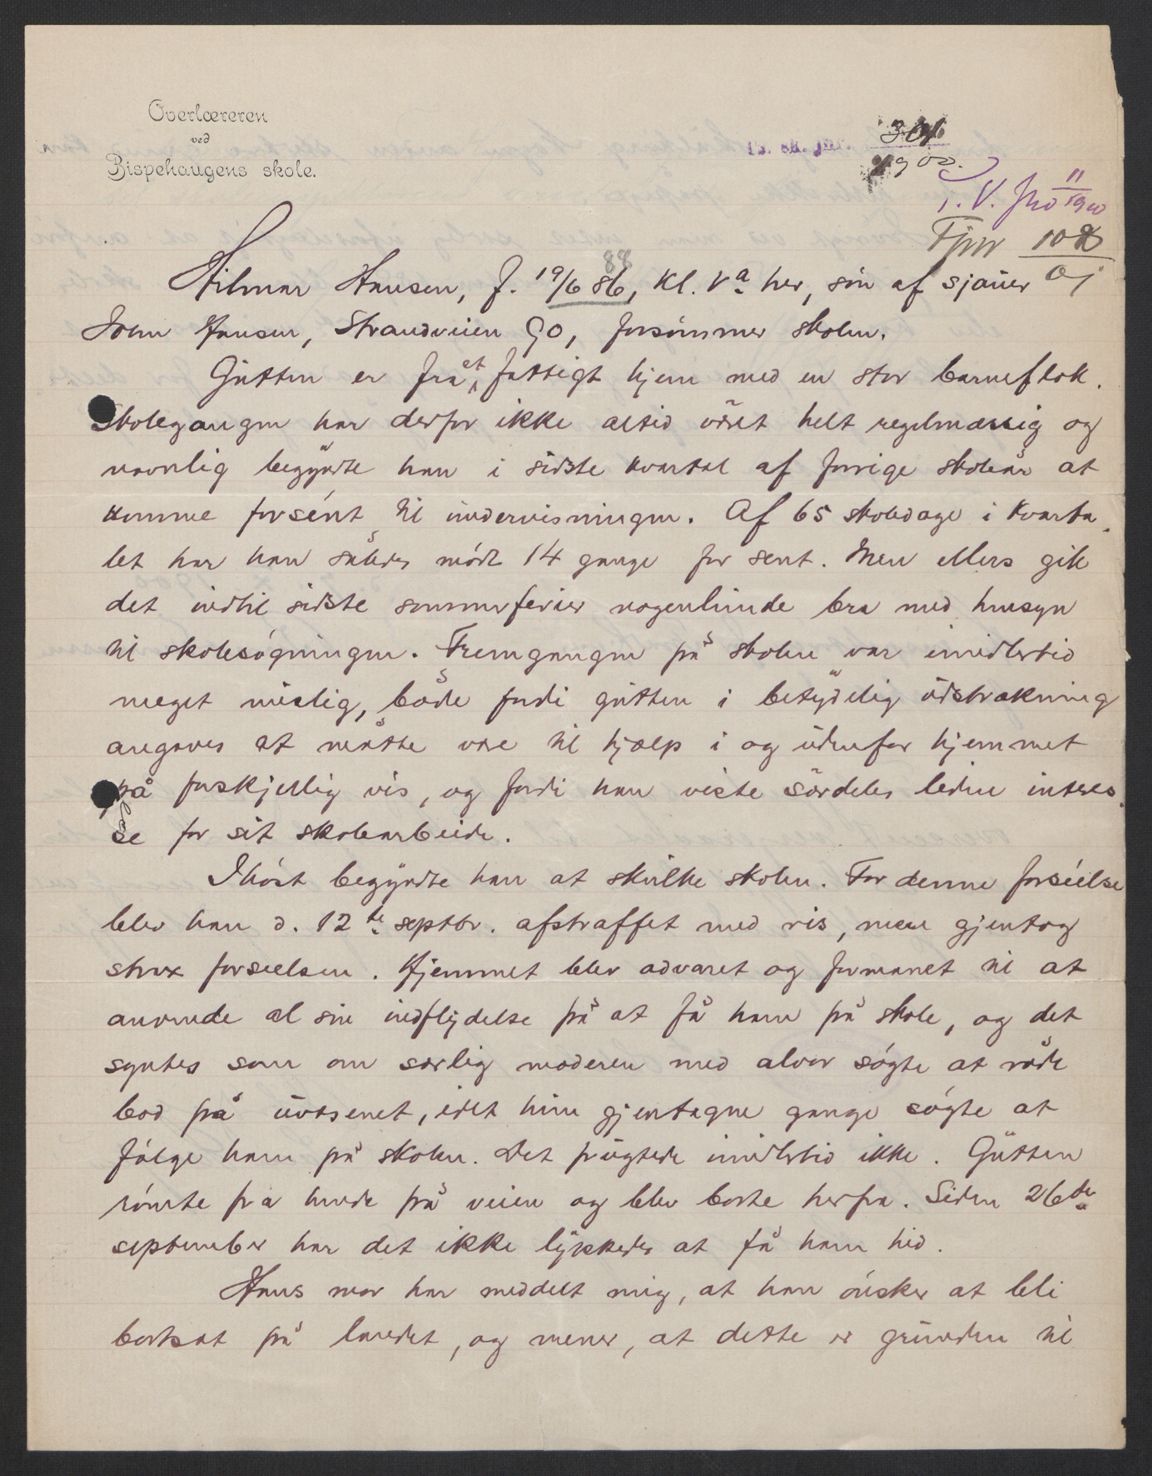 Overlæreren
ved
Bispehaugens skole.
304
1900.
T. V. 11
1900
88
Hilmar Hansen, f. 19/6 86, Kl. Va her, søn af sjauer
John Hansen, Strandveien 90, forsømmer skolen.
Gutten er fra et fattigt hjem med en stor barneflok.
Skolegangen har derfor ikke altid været helt regelmæssig og
navnlig begyndte han i sidste kvartal af forrige skoleår at
komme forsént til undervisningen. Af 65 skoledage i kvarta
let har han således mødt 14 gange for sent. Men ellers gik
det indtil sidste sommerferier nogenlunde bra med hensyn
til skolesøgningen. Fremgangen på skolen var imidlertid
meget mislig, både fordi gutten i betydelig udstrækning
angaves at måtte være til hjælp i og udenfor hjemmet
på forskjellig vis, og fordi han viste særdeles liden interes
se for sit skolearbeide.
Ihøst begyndte han at skulke skolen. For denne forseelse
blev han d. 12te septbr. afstraffet med ris, men gjentog
strax forseelsen. Hjemmet blev advaret og formanet til at
anvende al sin indflydelse på at få ham på skole, og det
syntes som om særlig moderen med alvor søgte at råde
bod på uvæsenet, idet hun gjentagne gange søgte at
følge ham på skolen. Det frugtede imidlertid ikke. Gutten
rømte fra hende på veien og blev borte herfra. Siden 26de
september har det ikke lykkedes at få ham hid.
Hans mor har meddelt mig, at han ønsker at bli
bortsat på landet, og mener, at dette er grunden til